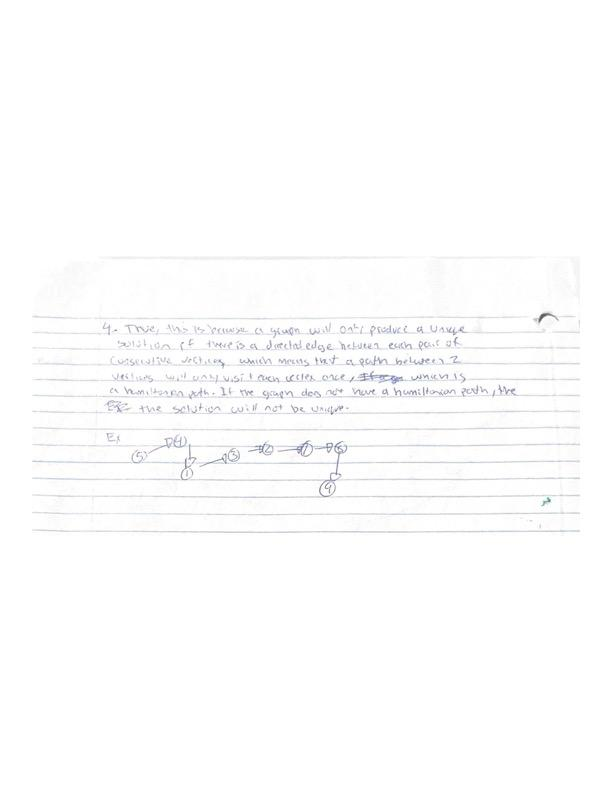 4. True, this is because a graph will only produce a unique
solution if there is a directed edge between each pair of
consecutive vertices, which means that a path between 2
vertices will only visit each vertex once, which is
a hamiltonian path. If the graph does not have a hamiltonian path, the
the solution will not be unique.
Ex
5 4 1 3 2 7 8 9